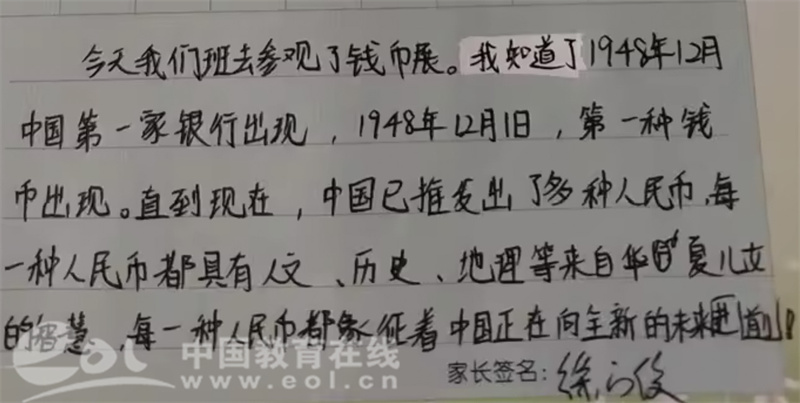 今天我们班去参观了钱币展。我知道了1948年12月
中国第一家银行出现，1948年12月1日，第一种钱
币出现。直到现在，中国已推发出了多种人民币，每
一种人民币都具有人文、历史、地理等来自华夏儿女
的智慧，每一种人民币都象征着中国正在向全新的未来迈前！
eol 中国教育在线
www.eol.cn
家长签名：徐